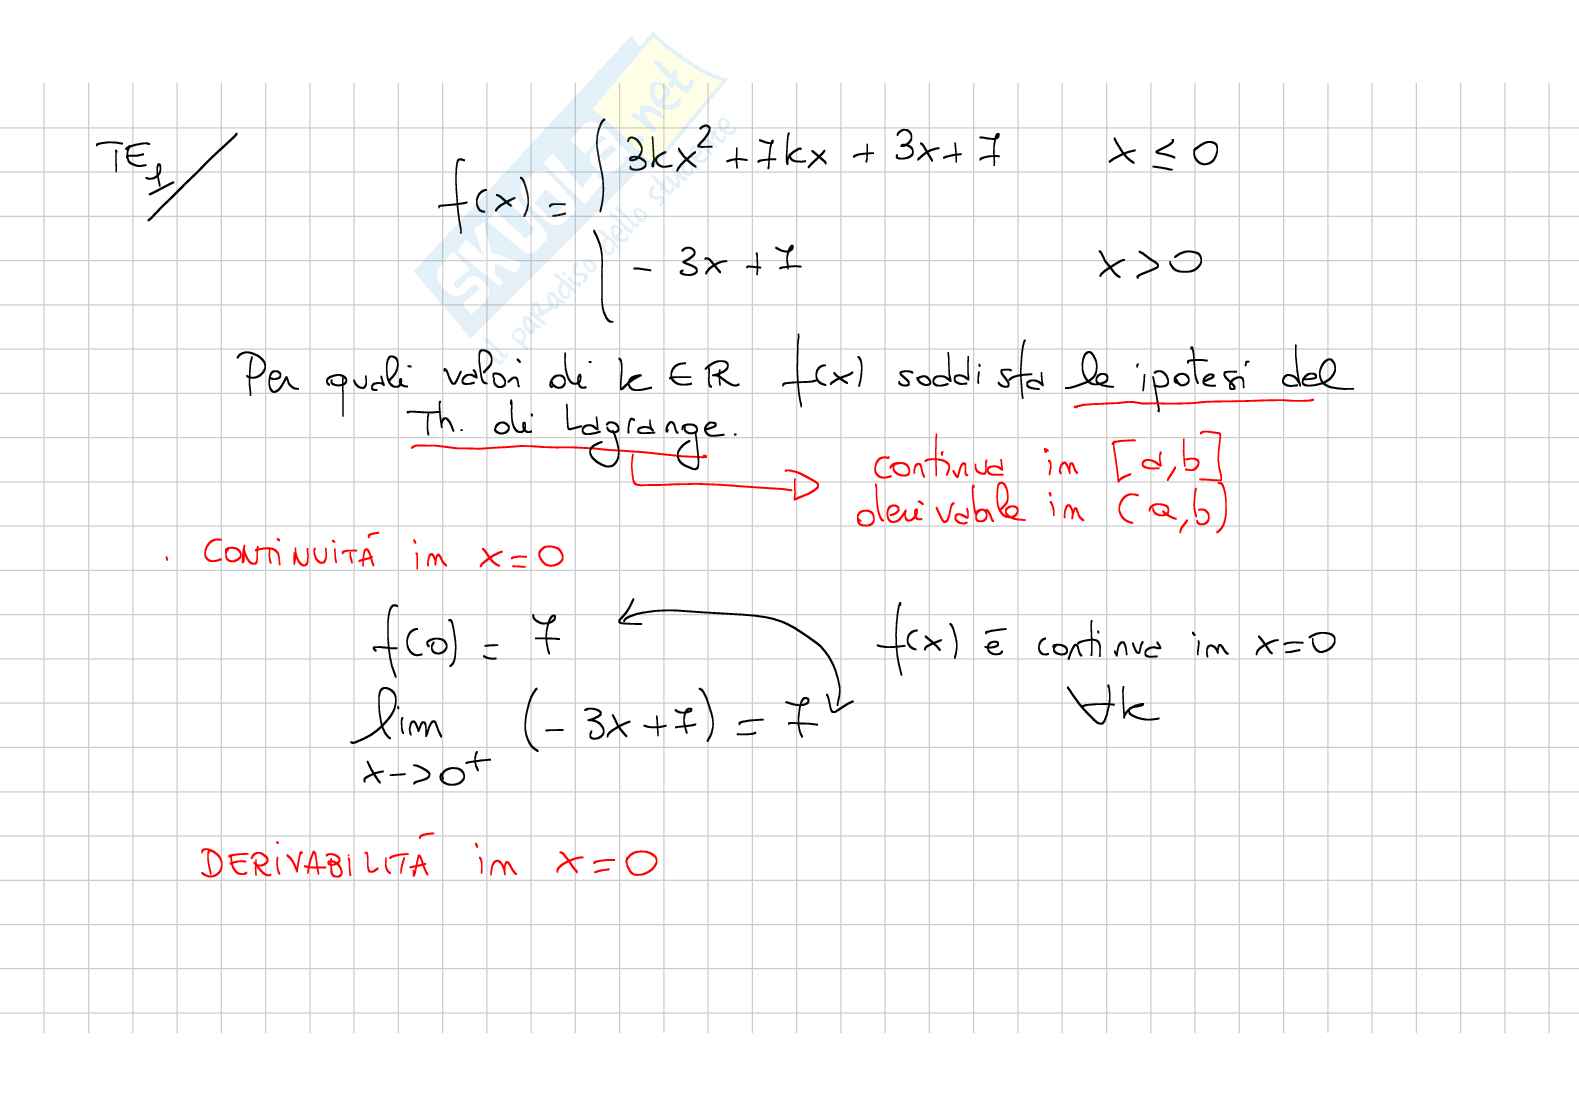 TE1
f(x) = { 3kx² + 7kx + 3x + 7    x ≤ 0
- 3x + 7    x > 0
Per quali valori di k ∈ R f(x) soddisfa le ipotesi del
Th. di Lagrange.
continua in [a,b]
derivabile in (a,b)
. CONTINUITÀ in x=0
f(0) = 7    f(x) è continua in x=0
∀k
lim (- 3x + 7) = 7
x->0+
DERIVABILITÀ in x=0
SKUOLA.net
il paradiso dello studente